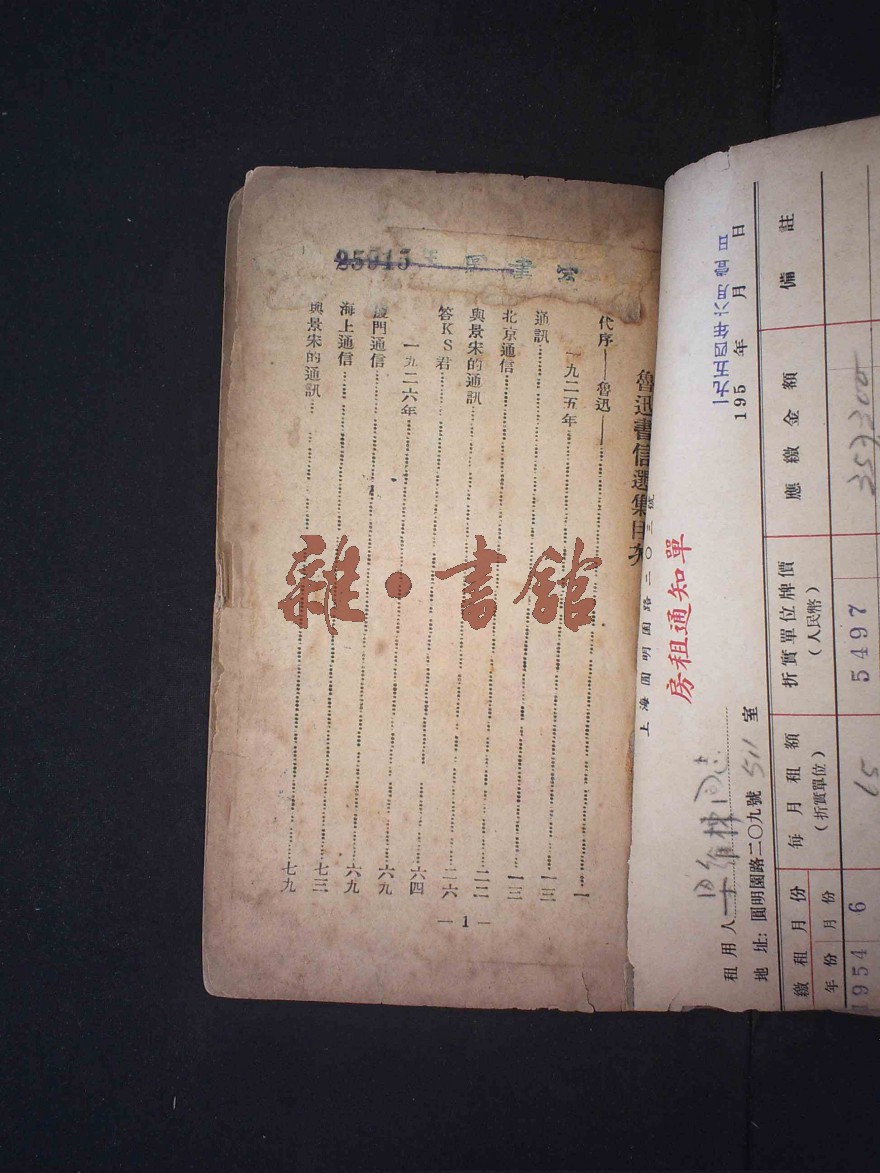 25915
書室
魯迅書信選集目
代序——魯迅——……一
一九二五年……一三
通訊……一三
北京通信……二二
與景宋的通訊……二六
答KS君……六四
一九二六年……六九
廈門通信……六九
海上通信……七三
與景宋的通訊……七九
— 1 —
雜·書館
上海圓明園路二〇三號
房租通知單
195 年 月 日
租用人 維林同志
地址:圓明園路二〇九號 511 室
繳租月份 每月租額(折實單位) 折實單位牌價(人民幣) 應繳金額 備註
年份 月份
1954 6 65 5497 357300